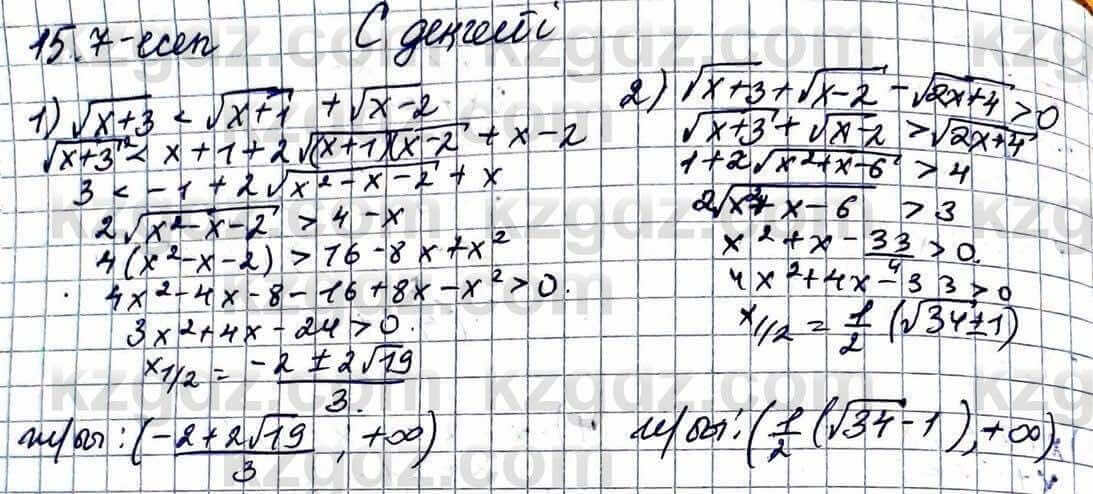 15.7-есеп
С деңгейі
1) √(x+3) < √(x+1) + √(x-2)
√(x+3)² < x+1+2√((x+1)(x-2)) + x-2
3 < -1 + 2√(x²-x-2) + x
2√(x²-x-2) > 4-x
4(x²-x-2) > 16-8x+x²
4x²-4x-8-16+8x-x² > 0.
3x²+4x-24 > 0.
x1/2 = (-2 ± 2√19)/3.
ж/бы: ((-2+2√19)/3, +∞)
2) √(x+3) + √(x-2) - √(2x+4) > 0
√(x+3) + √(x-2) > √(2x+4)
1+2√(x²+x-6) > 4
2√(x²+x-6) > 3
x²+x-33/4 > 0.
4x²+4x-33 > 0
x1/2 = 1/2 (√34±1)
ж/бы: (1/2 (√34-1), +∞)
kzgdz.com